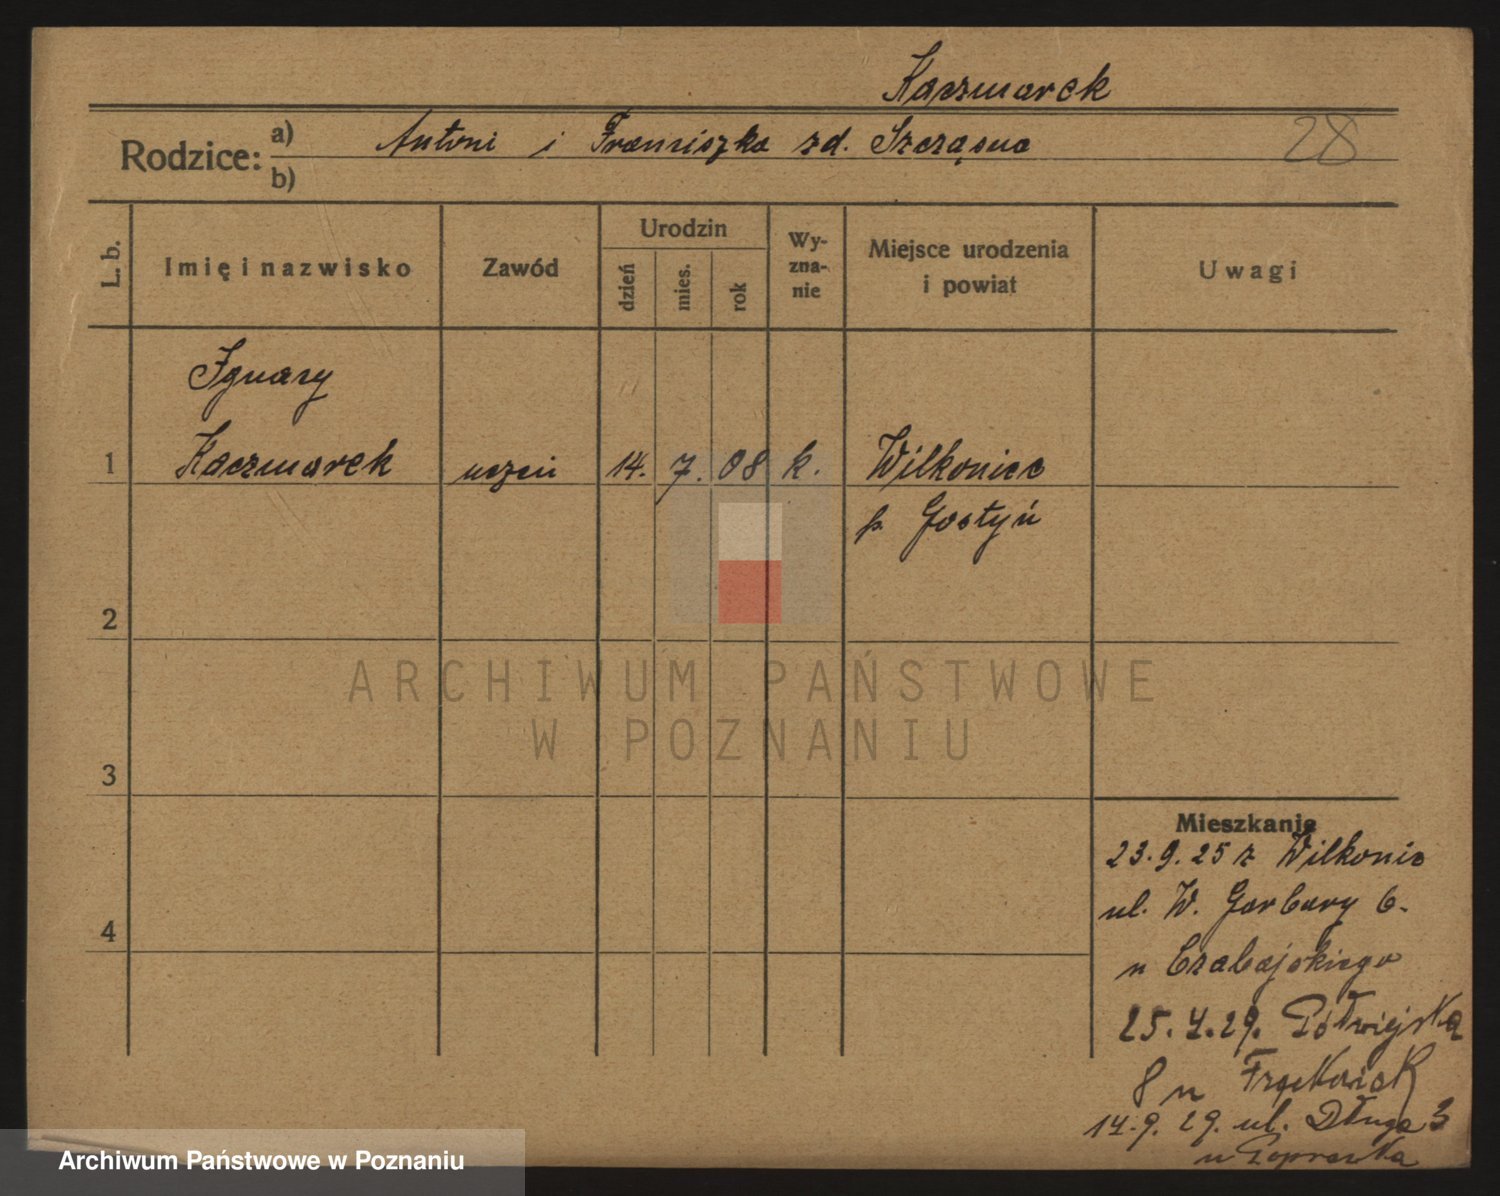 Kaczmarek
Rodzice: a) Antoni i Franciszka zd. Szcząsna 28
b)
L. b. Imię i nazwisko Zawód Urodzin dzień mies. rok Wy-zna-nie Miejsce urodzenia i powiat Uwagi
Ignacy
1 Kaczmarek uczeń 14. 7. 08 k. Wilkonice
p. Gostyń
2
ARCHIWUM PAŃSTWOWE
W POZNANIU
3
4
Mieszkanie
23.9.25 z Wilkonic
ul. W. Garbary 6.
u Czabajskiego
25.4.29. Półwiejska
8 u
14.9.29. ul. Długa 3
u
Archiwum Państwowe w Poznaniu